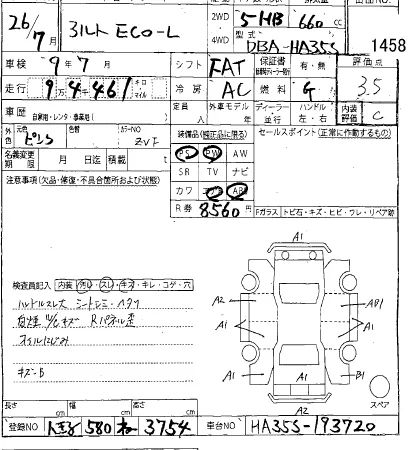 26/7月 ミルト ECO-L 2WD 4WD 5HB 660 cc
型式 DBA-HA35S 1458
車検 9年7月 シフト FAT 保証書 有・無 評価点
走行 9万4,461 キロ マイル 冷房 AC 燃料 G 3.5
車歴 自家用・レンタ・事業用 定員 人 外車モデル 年 ディーラー 並行 ハンドル 左・右 内装評価 C
外色 元色 ピンク 色替 カラーNO ZVF 装備品(純正品に限る) セールスポイント(正常に作動するもの)
名義変更期限 月 日迄 積載 t PS PW AW
注意事項(欠品・修復・不具合箇所および状態) SR TV ナビ
カワ エアB ABS
R券 8560 円 Fガラス トビ石・キズ・ヒビ・ワレ・リペア跡
検査員記入 内装 汚れ・スレ・キズ・キレ・コゲ・穴
ハンドルスレ大 シートシミ・ヘタリ
Rパネル歪
オイルにじみ
キズ・B
A1
A2 AB1
A1 A1 A1 A1
A1 A1 B1
A2 スペア
長さ cm 幅 cm 高さ cm
登録NO 580 3754 車台NO HA35S-193720